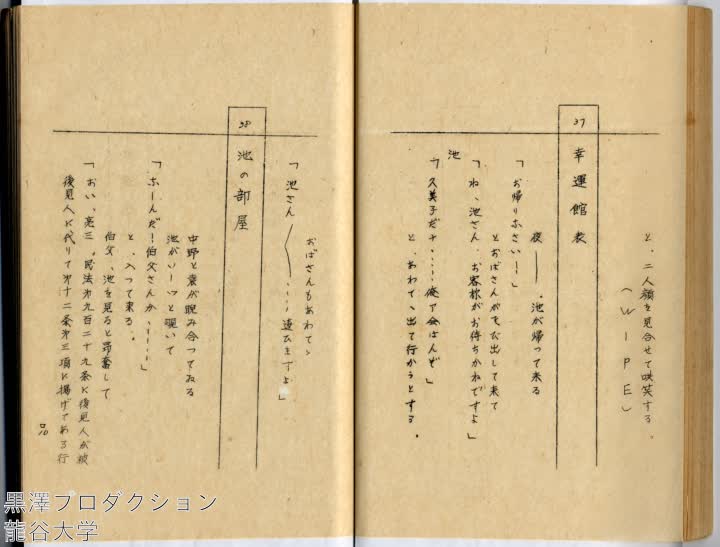 と、二人顔を見合せて哄笑する。
(WIPE)
37
幸運館表
夜――。池が帰って来る
「お帰りなさい！」
とおばさんがとび出して来て
「ね、池さん、お客様がお待ちかねですよ」
池
「久美子だナ……俺ァ会はんぞ」
と、あわてゝ出て行かうとする。
おばさんもあわてゝ
「池さん〱……違ひますよ」
38
池の部屋
中野と袁が睨み合ってゐる
池がい！ッと覗いて
「なーんだ！伯父さんか……」
と、入って来る。
伯父、池を見ると昂奮して
「おい、亮三。民法第九百二十九条に後見人が被
後見人に代りて第十二条第三項に掲げてある行
黒澤プロダクション
龍谷大学